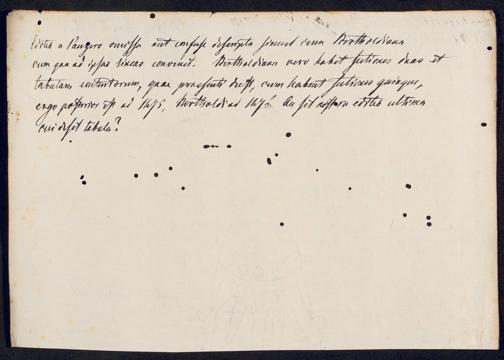 Editio a Panzero omissa aut confuse descripta simul cum Bertholdiana
cum qua ad ipsas lineas convenit. Bertholdiana vero habet folia duas et
tabulam initiorum, quae praesenti deest, cum habeat quinque,
ergo posterior est ad 1475, Bertholdi ad 1472. An sit nostra editio ultima
cui desit tabula?